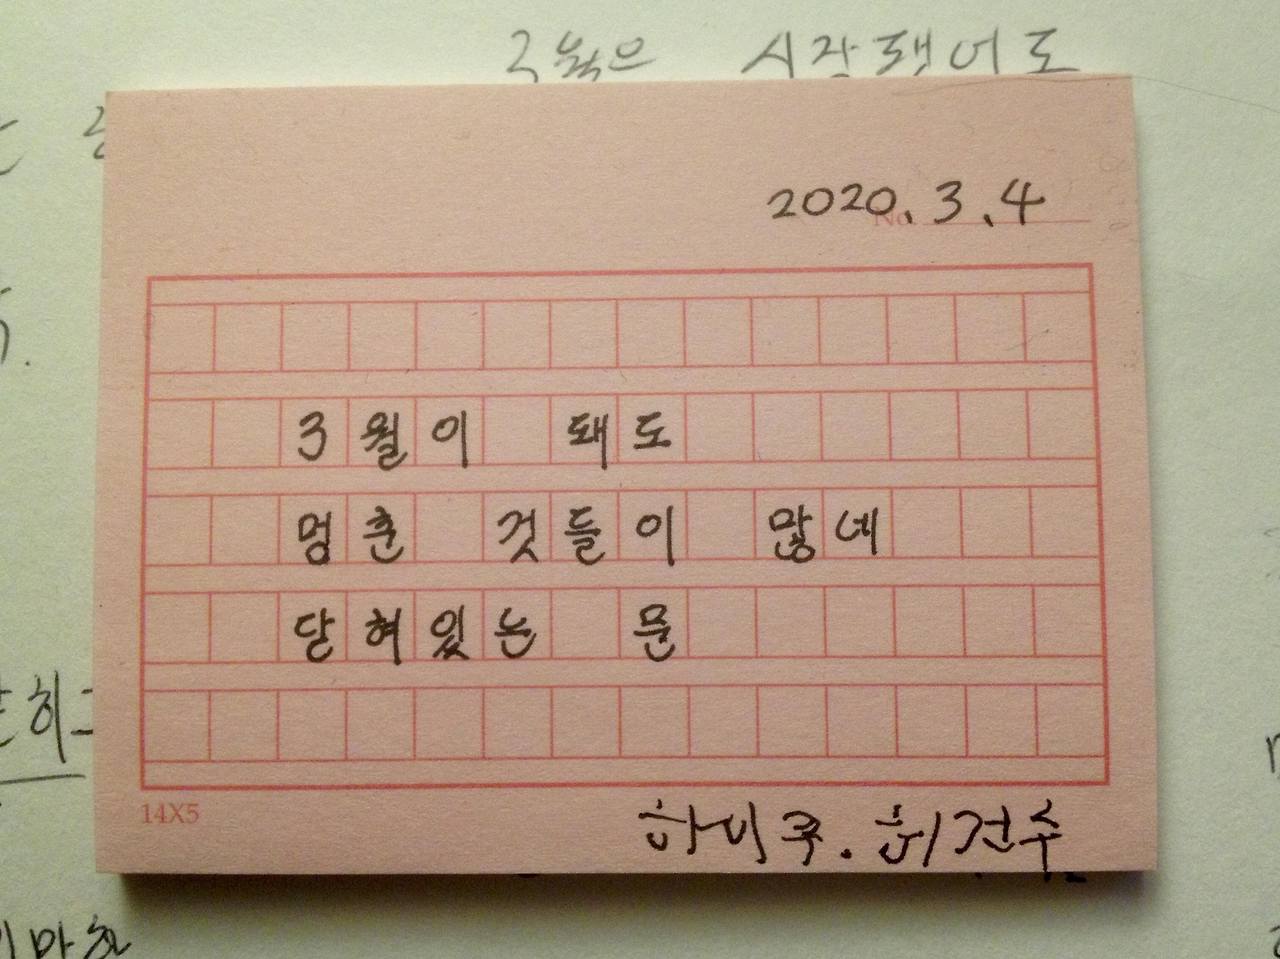 3월은 시작됐어도
2020.3.4
No.
3월이 돼도
멈춘 것들이 많네
닫혀있는 문
14X5
하이쿠. 허건수